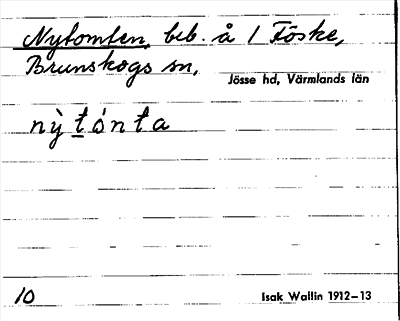 Nytomten, beb. å 1 Föske,
Brunskogs sn,
Jösse hd, Värmlands län
nỳ t ón t a
10
Isak Wallin 1912–13